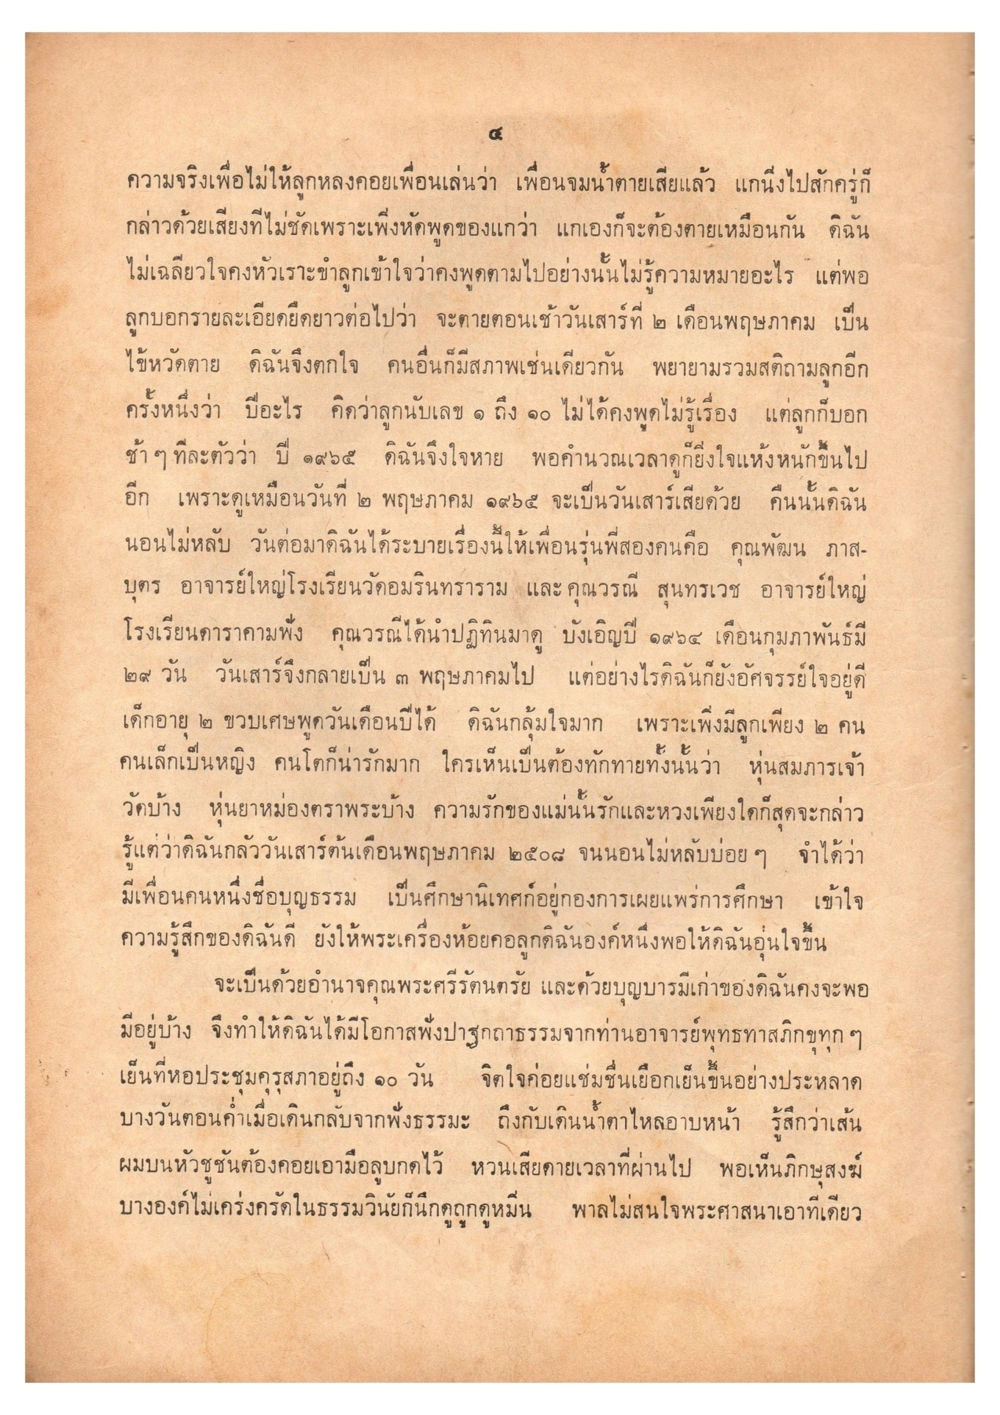 ๔
ความจริงเพื่อไม่ให้ลูกหลงคอยเพื่อนเล่นว่า เพื่อนจมน้ำตายเสียแล้ว แกนิ่งไปสักครู่ก็
กล่าวด้วยเสียงที่ไม่ชัดเพราะเพิ่งหัดพูดของแกว่า แกเองก็จะต้องตายเหมือนกัน ดิฉัน
ไม่เฉลียวใจคงหัวเราะขำลูกเข้าใจว่าคงพูดตามไปอย่างนั้นไม่รู้ความหมายอะไร แต่พอ
ลูกบอกรายละเอียดยืดยาวต่อไปว่า จะตายตอนเช้าวันเสาร์ที่ ๒ เดือนพฤษภาคม เป็น
ไข้หวัดตาย ดิฉันจึงตกใจ คนอื่นก็มีสภาพเช่นเดียวกัน พยายามรวมสติถามลูกอีก
ครั้งหนึ่งว่า ปีอะไร คิดว่าลูกนับเลข ๑ ถึง ๑๐ ไม่ได้คงพูดไม่รู้เรื่อง แต่ลูกก็บอก
ช้า ๆ ทีละตัวว่า ปี ๑๙๖๕ ดิฉันจึงใจหาย พอคำนวณเวลาดูก็ยิ่งใจแห้งหนักขึ้นไป
อีก เพราะดูเหมือนวันที่ ๒ พฤษภาคม ๑๙๖๕ จะเป็นวันเสาร์เสียด้วย คืนนั้นดิฉัน
นอนไม่หลับ วันต่อมาดิฉันได้ระบายเรื่องนี้ให้เพื่อนรุ่นพี่สองคนคือ คุณพัฒน ภาส-
บุตร อาจารย์ใหญ่โรงเรียนวัดอมรินทราราม และคุณวรณี สุนทรเวช อาจารย์ใหญ่
โรงเรียนดาราคามฟัง คุณวรณีได้นำปฏิทินมาดู บังเอิญปี ๑๙๖๔ เดือนกุมภาพันธ์มี
๒๙ วัน วันเสาร์จึงกลายเป็น ๓ พฤษภาคมไป แต่อย่างไรดิฉันก็ยังอัศจรรย์ใจอยู่ดี
เด็กอายุ ๒ ขวบเศษพูดวันเดือนปีได้ ดิฉันกลุ้มใจมาก เพราะเพิ่งมีลูกเพียง ๒ คน
คนเล็กเป็นหญิง คนโตก็น่ารักมาก ใครเห็นเป็นต้องทักทายทั้งนั้นว่า หุ่นสมภารเจ้า
วัดบ้าง หุ่นยาหม่องตราพระบ้าง ความรักของแม่นั้นรักและหวงเพียงใดก็สุดจะกล่าว
รู้แต่ว่าดิฉันกลัววันเสาร์ต้นเดือนพฤษภาคม ๒๕๐๘ จนนอนไม่หลับบ่อย ๆ จำได้ว่า
มีเพื่อนคนหนึ่งชื่อบุญธรรม เป็นศึกษานิเทศก์อยู่กองการเผยแพร่การศึกษา เข้าใจ
ความรู้สึกของดิฉันดี ยังให้พระเครื่องห้อยคอลูกดิฉันองค์หนึ่งพอให้ดิฉันอุ่นใจขึ้น
จะเป็นด้วยอำนาจคุณพระศรีรัตนตรัย และด้วยบุญบารมีเก่าของดิฉันคงจะพอ
มีอยู่บ้าง จึงทำให้ดิฉันได้มีโอกาสฟังปาฐกถาธรรมจากท่านอาจารย์พุทธทาสภิกขุทุก ๆ
เย็นที่หอประชุมคุรุสภาอยู่ถึง ๑๐ วัน จิตใจค่อยแช่มชื่นเยือกเย็นขึ้นอย่างประหลาด
บางวันตอนค่ำเมื่อเดินกลับจากฟังธรรมะ ถึงกับเดินน้ำตาไหลอาบหน้า รู้สึกว่าเส้น
ผมบนหัวชูชันต้องคอยเอามือลูบกดไว้ หวนเสียดายเวลาที่ผ่านไป พอเห็นภิกษุสงฆ์
บางองค์ไม่เคร่งครัดในธรรมวินัยก็นึกดูถูกดูหมิ่น พาลไม่สนใจพระศาสนาเอาทีเดียว